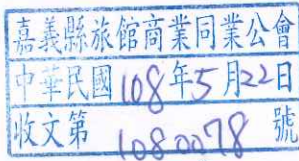 嘉義縣旅館商業同業公會
中華民國108年5月22日
收文第1080078號